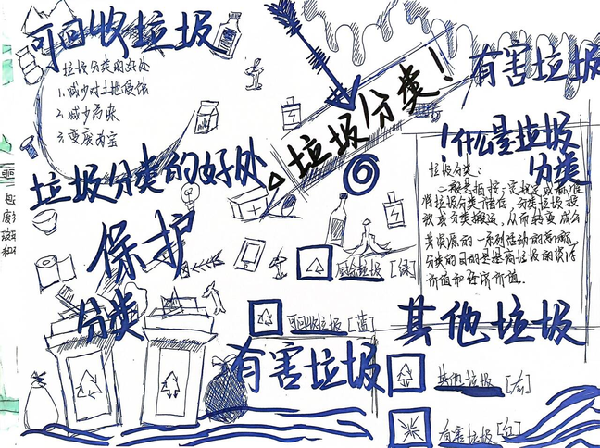 可回收垃圾
垃圾分类的好处
1.减少土地侵蚀
2.减少污染
3.变废为宝
垃圾分类的好处
保护
分类
垃圾分类!
有害垃圾
!什么是垃圾
分类
垃圾分类:
一般是指按一定规定或标准
将垃圾分类储存、分类垃圾投
放或分类搬运,从而转变成公
共资源的一系列活动的总称。
分类的目的是提高垃圾的资源
价值和经济价值.
厨余垃圾[绿]
可回收垃圾[蓝]
有害垃圾
其他垃圾
其他垃圾[灰]
有害垃圾[红]